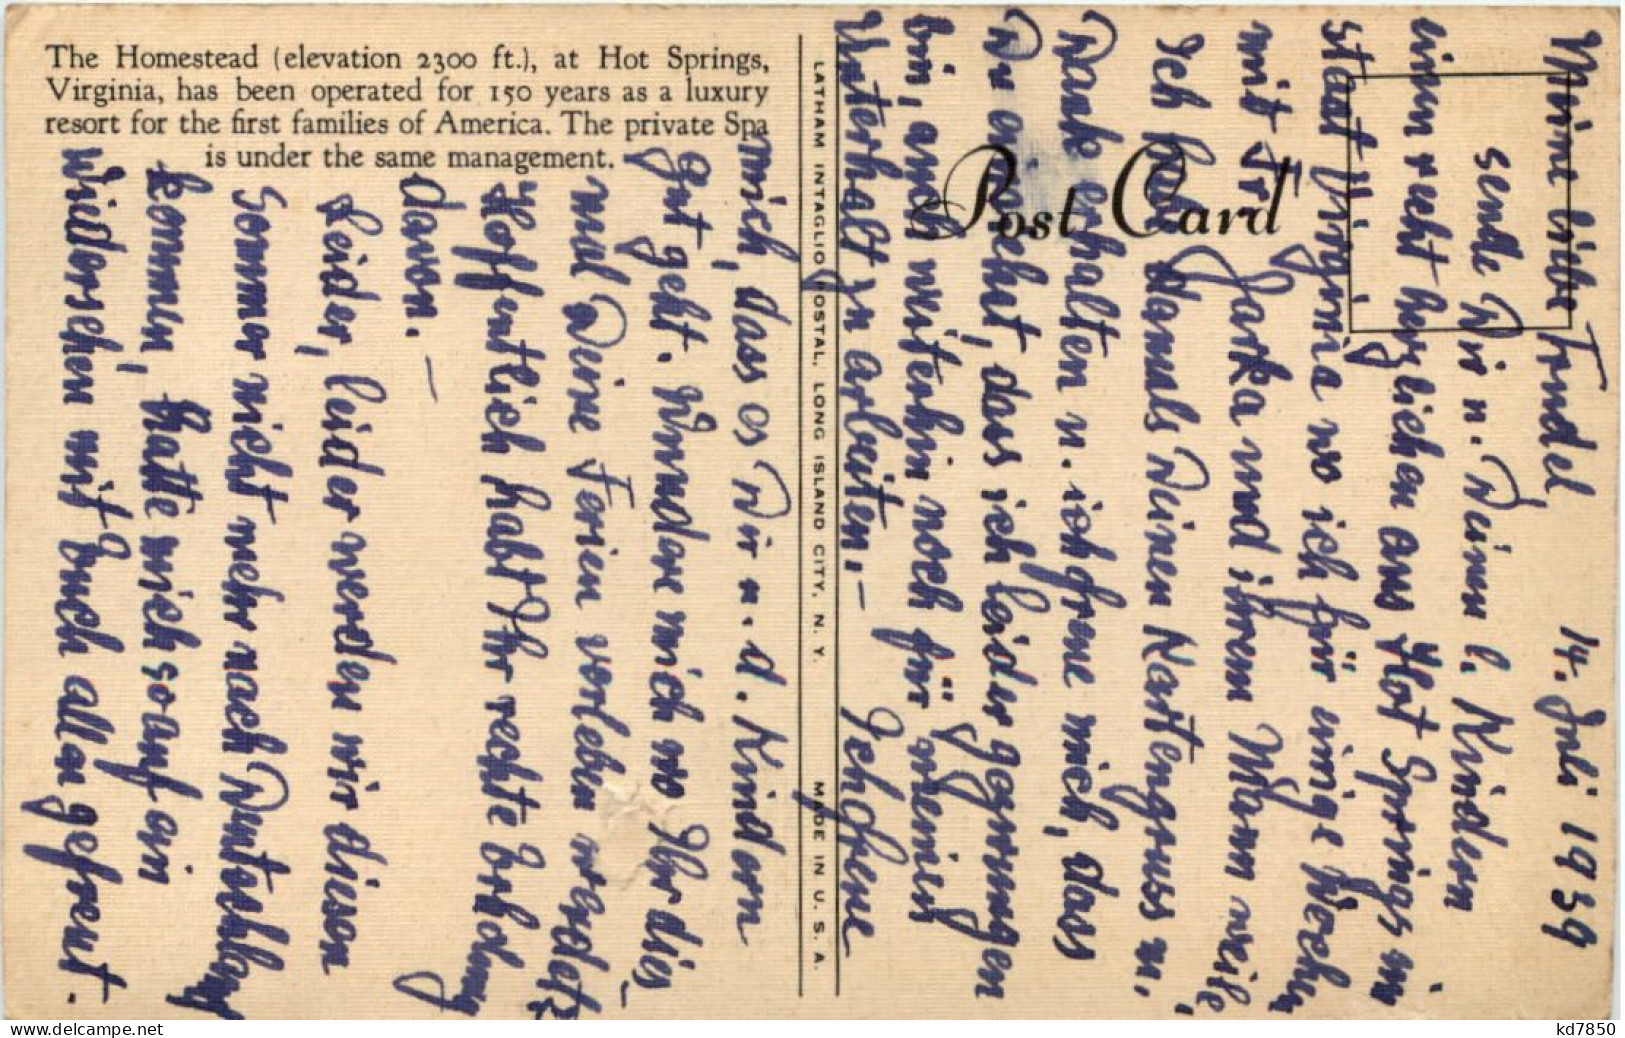 The Homestead (elevation 2300 ft.), at Hot Springs,
Virginia, has been operated for 150 years as a luxury
resort for the first families of America. The private Spa
is under the same management.
Post Card
LATHAM INTAGLIO POSTAL, LONG ISLAND CITY, N. Y. MADE IN U. S. A.
14. Juli 1939
Meine liebe Trudel,
sende Dir u. Deinen l. Kindern
einen recht herzlichen aus Hot Springs im
Staat Virginia wo ich für einige Wochen
mit Fr. und ihrem Mann weile,
Ich habe damals Deinen Kartengruss m.
Dank erhalten u. ich freue mich, dass
Du annehmst, dass ich leider gezwungen
bin, auch weiterhin noch für meinen
Unterhalt zu arbeiten. – Ich freue
mich, dass es Dir u. d. Kindern
gut geht. Wundere mich wo Ihr dies-
mal Deine Ferien verleben werdet?
Hoffentlich habt Ihr rechte Erholung
davon. –
Leider, leider werden wir diesen
Sommer nicht mehr nach Deutschland
kommen, hatte mich so auf ein
Wiedersehen mit Euch allen gefreut.
kd7850